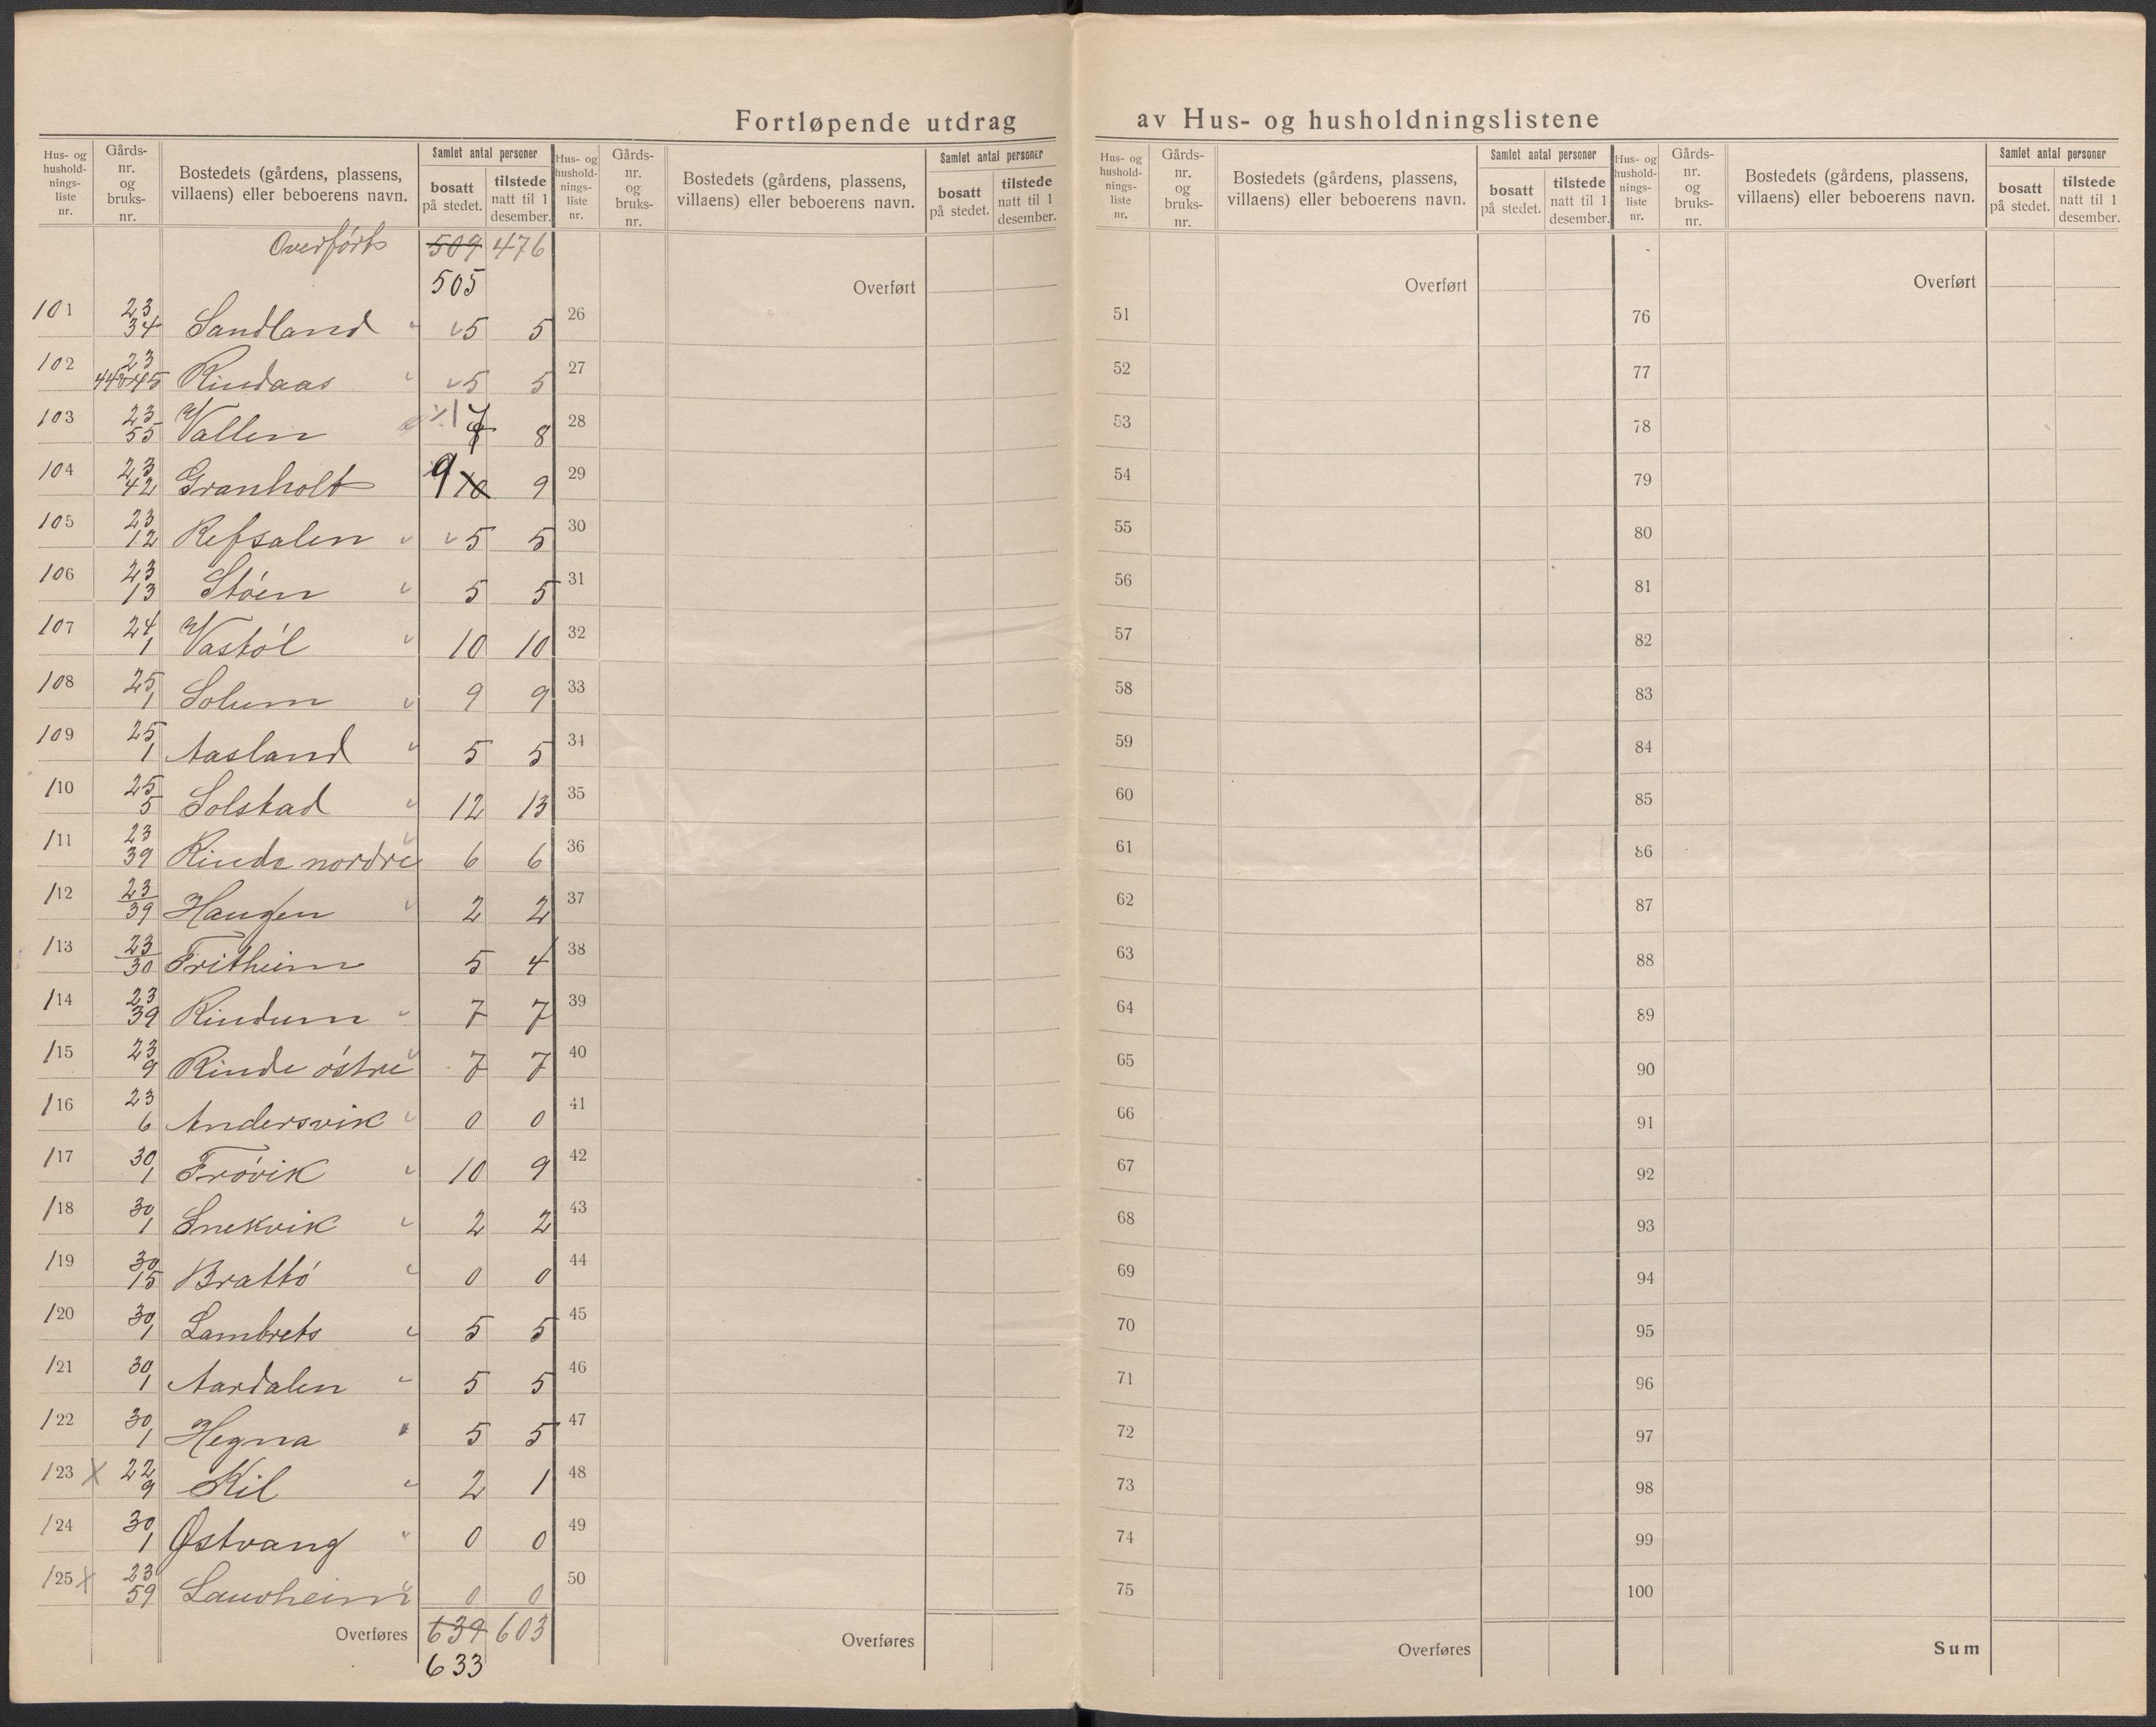 Fortløpende utdrag av Hus- og husholdningslistene
Hus- og hushold-nings-liste nr. Gårds-nr. og bruks-nr. Bostedets (gårdens, plassens, villaens) eller beboerens navn. Samlet antal personer bosatt på stedet. tilstede natt til 1 desember.
Hus- og hushold-nings-liste nr. Gårds-nr. og bruks-nr. Bostedets (gårdens, plassens, villaens) eller beboerens navn. Samlet antal personer bosatt på stedet. tilstede natt til 1 desember.
Hus- og hushold-nings-liste nr. Gårds-nr. og bruks-nr. Bostedets (gårdens, plassens, villaens) eller beboerens navn. Samlet antal personer bosatt på stedet. tilstede natt til 1 desember.
Hus- og hushold-nings-liste nr. Gårds-nr. og bruks-nr. Bostedets (gårdens, plassens, villaens) eller beboerens navn. Samlet antal personer bosatt på stedet. tilstede natt til 1 desember.
Overført 509 476
505
101 23 34 Sandland 5 5
102 23 44&45 Rindaas 5 5
103 23 55 Vallen 7 8
104 23 42 Granholt 9 10 9
105 23 12 Refsalen 5 5
106 23 13 Støen 5 5
107 24 1 Vastøl 10 10
108 25 1 Solum 9 9
109 25 1 Aasland 5 5
110 25 5 Solstad 12 13
111 23 39 Rinde nordre 6 6
112 23 39 Haugen 2 2
113 23 30 Fritheim 5 4
114 23 39 Rindum 7 7
115 23 9 Rinde østre 7 7
116 23 6 Andersvik 0 0
117 30 1 Frøvik 10 9
118 30 1 Snekvik 2 2
119 30 15 Brattø 0 0
120 30 1 Lambrets 5 5
121 30 1 Aardalen 5 5
122 30 1 Hegna 5 5
123 X 22 9 Kil 2 1
124 30 1 Østvang 0 0
125 X 23 59 Laurheim 0 0
Overføres 639 603
633
Overført
26
27
28
29
30
31
32
33
34
35
36
37
38
39
40
41
42
43
44
45
46
47
48
49
50
Overføres
Overført
51
52
53
54
55
56
57
58
59
60
61
62
63
64
65
66
67
68
69
70
71
72
73
74
75
Overføres
Overført
76
77
78
79
80
81
82
83
84
85
86
87
88
89
90
91
92
93
94
95
96
97
98
99
100
Sum